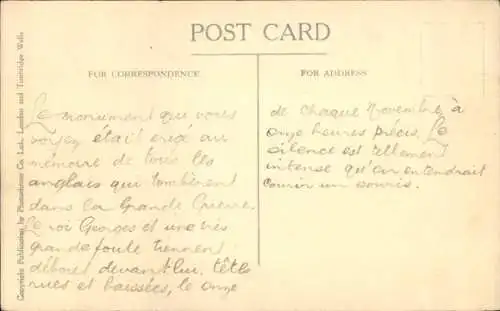 POST CARD
FOR CORRESPONDENCE
FOR ADDRESS
Copyright Publication by Photochrom Co. Ltd., London and Tunbridge Wells
Le monument que vous
voyez était erigé au
mémoire de tous les
anglais qui tombèrent
dans la Grande Guerre.
Le roi Georges et une très
grande foule tiennent
débout devant lui, têtes
nues et baissées, le onze
de chaque Novembre à
onze heures précis. Le
silence est tellement
intense qu'on entendrait
courir un souris.